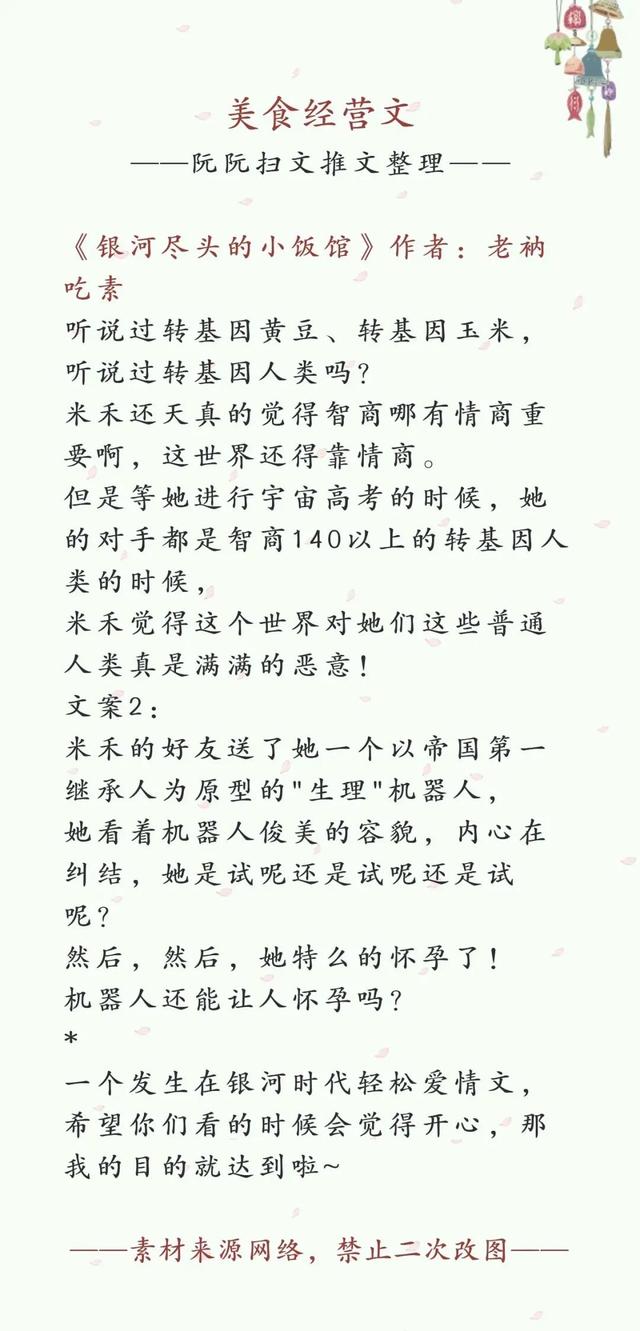 美食经营文
——阮阮扫文推文整理——
《银河尽头的小饭馆》作者：老衲
吃素
听说过转基因黄豆、转基因玉米，
听说过转基因人类吗？
米禾还天真的觉得智商哪有情商重
要啊，这世界还得靠情商。
但是等她进行宇宙高考的时候，她
的对手都是智商140以上的转基因人
类的时候，
米禾觉得这个世界对她们这些普通
人类真是满满的恶意！
文案2：
米禾的好友送了她一个以帝国第一
继承人为原型的"生理"机器人，
她看着机器人俊美的容貌，内心在
纠结，她是试呢还是试呢还是试
呢？
然后，然后，她特么的怀孕了！
机器人还能让人怀孕吗？
*
一个发生在银河时代轻松爱情文，
希望你们看的时候会觉得开心，那
我的目的就达到啦~
——素材来源网络，禁止二次改图——